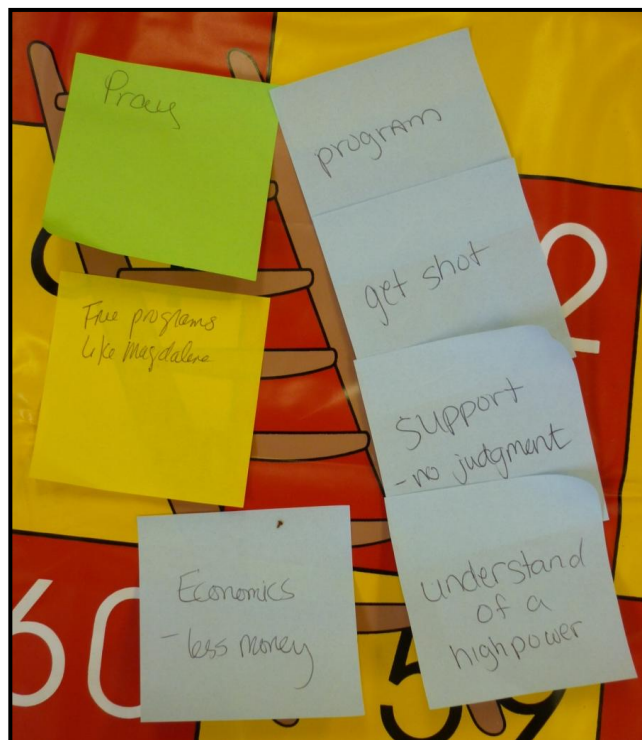 Pray
Free programs
Like Magdalene
Economics
- less money
program
get shot
support
- no judgment
understand
of a
highpower
60
59
2